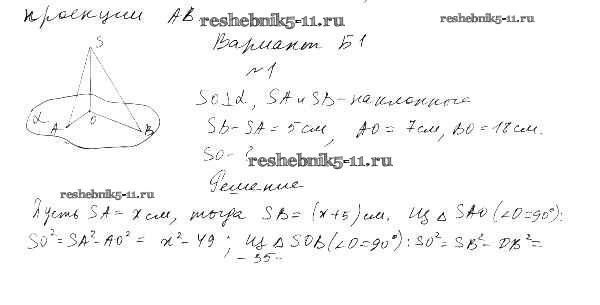 проекции AB reshebnik5-11.ru reshebnik5-11.ru
Вариант Б1
№1
S
α A O B
SO⊥α, SA и SB – наклонные
SB-SA=5см, AO=7см, BO=18см.
SO-? reshebnik5-11.ru
Решение
reshebnik5-11.ru
Пусть SA=x см, тогда SB=(x+5)см. Из △SAO(∠O=90°):
SO²=SA²-AO²= x²-49; из △SOB(∠O=90°): SO²=SB²-OB²=
-55-